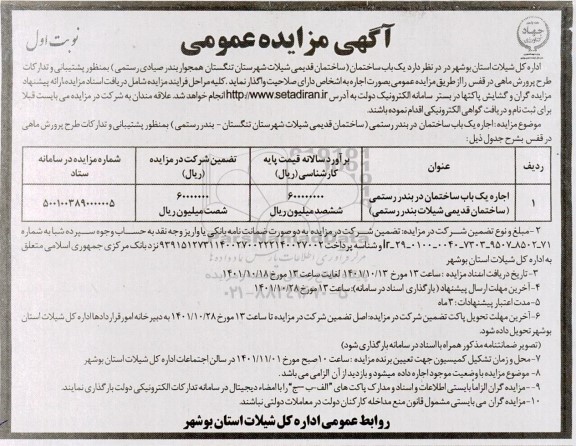 آگهی مزایده عمومی
نوبت اول
جهاد
اداره کل شیلات استان بوشهر در در نظر دارد یک باب ساختمان (ساختمان قدیمی شیلات شهرستان تنگستان همجوار بندر صیادی رستمی) بمنظور پشتیبانی و تدارکات
طرح پرورش ماهی در قفس را از طریق مزایده عمومی بصورت اجاره به اشخاص دارای صلاحیت واگذار نماید. کلیه مراحل فرایند مزایده شامل دریافت اسناد مزایده ارائه پیشنهاد
مزایده گران و گشایش پاکتها در بستر سامانه الکترونیک دولت به آدرس http://www.setadiran.ir انجام خواهد شد. علاقه مندان به شرکت در مزایده می بایست قبلا
برای ثبت نام و دریافت گواهی الکترونیکی اقدام نموده باشند.
موضوع مزایده: اجاره یک باب ساختمان در بندر رستمی (ساختمان قدیمی شیلات شهرستان تنگستان - بندر رستمی) بمنظور پشتیبانی و تدارکات طرح پرورش ماهی
در قفس بشرح جدول ذیل:
ردیف عنوان برآورد سالانه قیمت پایه کارشناسی (ریال) تضمین شرکت در مزایده (ریال) شماره مزایده در سامانه ستاد
۱ اجاره یک باب ساختمان در بندر رستمی (ساختمان قدیمی شیلات بندر رستمی) ۶۰۰۰۰۰۰۰۰ ششصد میلیون ریال ۶۰۰۰۰۰۰۰ شصت میلیون ریال ۵۰۰۱۰۰۳۸۹۰۰۰۰۰۵
۲- مبلغ و نوع تضمین شرکت در مزایده: تضمین شرکت در مزایده به دو صورت ضمانت نامه بانکی یا واریز وجه نقد به حساب وجوه سپرده شبا به شماره
ir_۲۹-۰۱۰۰-۰۰۴۰-۷۳۰۳-۹۵۰۷-۸۵۰۲-۷۱ و شناسه پرداخت ۹۳۹۱۵۱۲۷۳۱۱۴۰۰۲۷۰۰۱۲۲۷۳۱۱۴۰۰ نزد بانک مرکزی جمهوری اسلامی متعلق
به اداره کل شیلات استان بوشهر
۳- تاریخ دریافت اسناد مزایده: ساعت ۱۳ مورخ ۱۴۰۱/۱۰/۱۳ لغایت ساعت ۱۳ مورخ ۱۴۰۱/۱۰/۱۸
۴- آخرین مهلت ارسال پیشنهاد (بارگذاری اسناد در سامانه): ساعت ۱۳ مورخ ۱۴۰۱/۱۰/۲۸
۵- مدت اعتبار پیشنهادات: ۳ ماه
۶- آخرین مهلت تحویل پاکت تضمین شرکت در مزایده: اصل تضمین شرکت در مزایده تا ساعت ۱۳ مورخ ۱۴۰۱/۱۰/۲۸ به دبیرخانه امور قراردادها اداره کل شیلات استان
بوشهر تحویل داده شود.
(تصویر ضمانتنامه مذکور همراه با اسناد در سامانه بارگذاری شود)
۷- محل و زمان تشکیل کمیسیون جهت تعیین برنده مزایده: ساعت ۱۰ صبح مورخ ۱۴۰۱/۱۱/۰۱ در سالن اجتماعات اداره کل شیلات استان بوشهر
۸- موضوع مزایده با وضعیت موجود اجاره داده میشود و بازدید از آن الزامی می باشد.
۹- مزایده گران الزاما بایستی اطلاعات و اسناد و مدارک پاکت های "الف-ب-ج" را با امضاء دیجیتال در سامانه تدارکات الکترونیکی دولت بارگذاری نمایند.
۱۰- مزایده گران می بایستی مشمول قانون منع مداخله کارکنان دولت در معاملات دولتی نباشند.
روابط عمومی اداره کل شیلات استان بوشهر